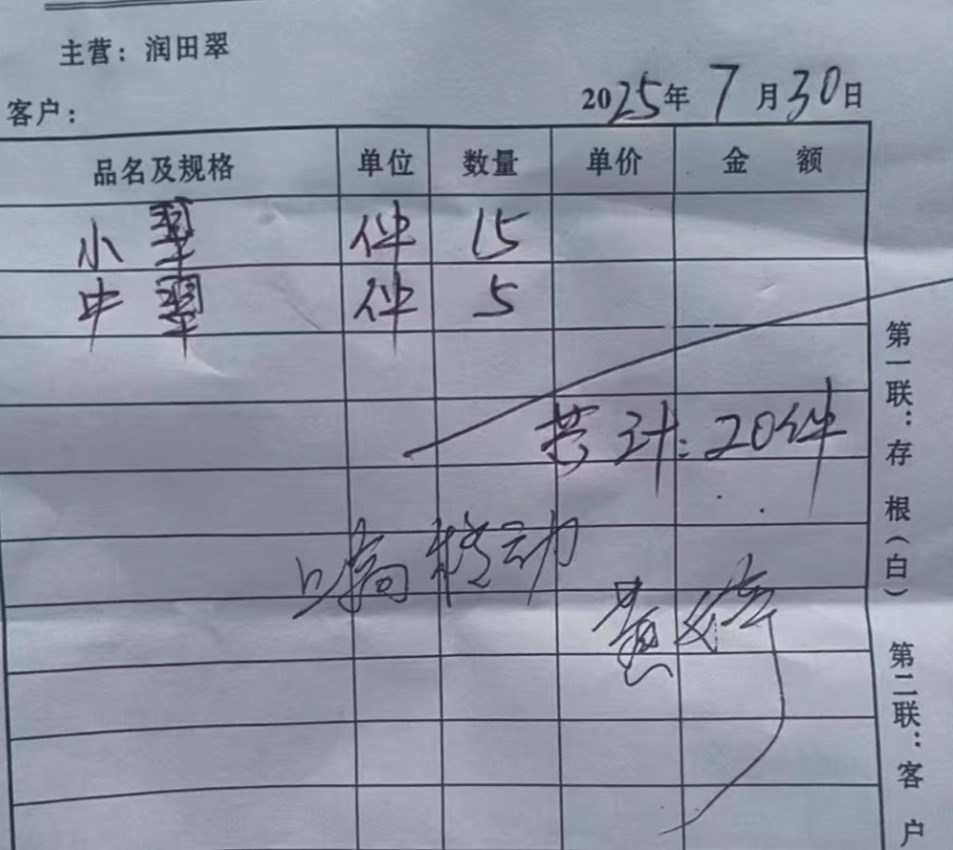 主营：润田翠
客户：
2025年 7 月 30 日
品名及规格 单位 数量 单价 金 额
小翠 件 15
中翠 件 5
共计：20件
移动
黄婷
第一联：存根（白）
第二联：客户